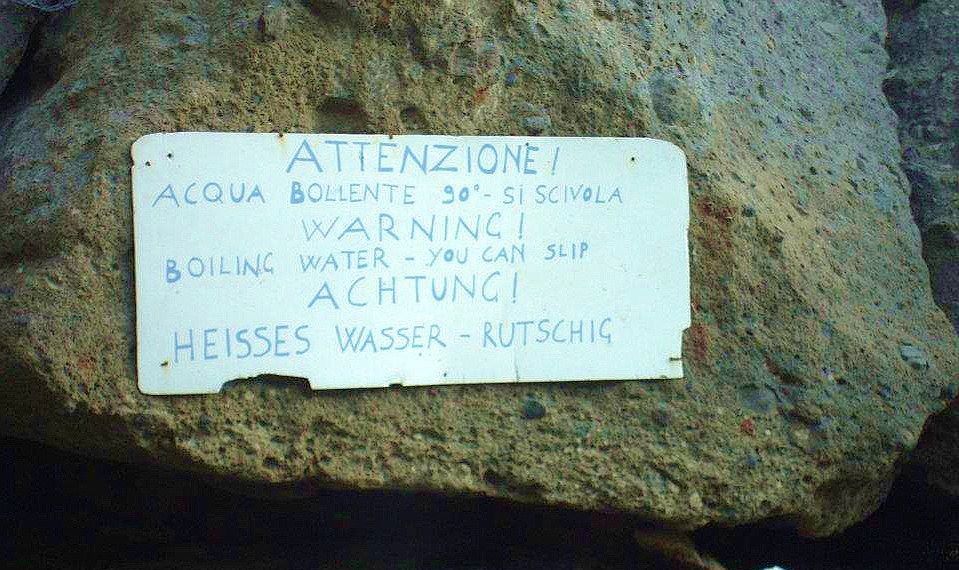 ATTENZIONE!
ACQUA BOLLENTE 90° - SI SCIVOLA
WARNING!
BOILING WATER - YOU CAN SLIP
ACHTUNG!
HEISSES WASSER - RUTSCHIG